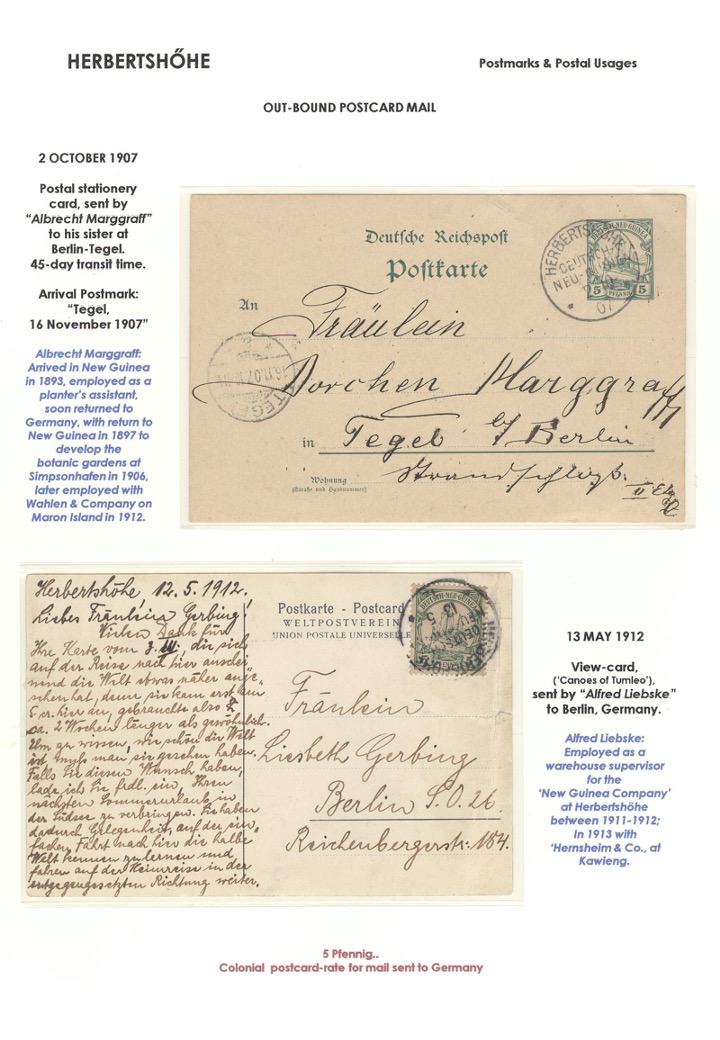 HERBERTSHŐHE
Postmarks & Postal Usages
OUT-BOUND POSTCARD MAIL
2 OCTOBER 1907
Postal stationery
card, sent by
“Albrecht Marggraff”
to his sister at
Berlin-Tegel.
45-day transit time.
Arrival Postmark:
“Tegel,
16 November 1907”
Albrecht Marggraff:
Arrived in New Guinea
in 1893, employed as a
planter's assistant,
soon returned to
Germany, with return to
New Guinea in 1897 to
develop the
botanic gardens at
Simpsonhafen in 1906,
later employed with
Wahlen & Company on
Maron Island in 1912.
Deutsche Reichspost
Postkarte
DEUTSCH-NEU-GUINEA
5 PFENNIG 5
HERBERTSHÖHE
DEUTSCH-
NEU-GUINEA
07
An
Fräulein
Dorchen Marggraff
in Tegel b/Berlin
Wohnung
(Straße und Hausnummer)
TEGEL
16.11.07
Herbertshöhe, 12.5.1912.
Liebes Fräulein Gerbing!
Vielen Dank für
Ihre Karte vom 3. III., die sich
auf der Reise nach hier anschei-
nend die Welt etwas näher ange-
sehen hat, denn sie kam erst am
5. cr. hier an, gebrauchte also
ca. 2 Wochen länger als gewöhnlich.
Um zu wissen, wie schön die Welt
ist muß man sie gesehen haben.
Falls Sie diesen Wunsch haben,
lade ich Sie frdl. ein, Ihren
nächsten Sommerurlaub in
der Südsee zu verbringen. Sie haben
dadurch Gelegenheit, auf der ein-
fachen Fahrt nach hier die halbe
Welt kennen zu lernen und
fahren auf der Heimreise in der
entgegengesetzten Richtung weiter.
Postkarte - Postcard
WELTPOSTVEREIN
UNION POSTALE UNIVERSELLE
DEUTSCH-NEU-GUINEA
Fräulein
Liesbeth Gerbing
Berlin S.O. 26.
Reichenbergerstr. 184.
13 MAY 1912
View-card,
('Canoes of Tumleo'),
sent by “Alfred Liebske”
to Berlin, Germany.
Alfred Liebske:
Employed as a
warehouse supervisor
for the
'New Guinea Company'
at Herbertshöhe
between 1911-1912;
In 1913 with
'Hernsheim & Co., at
Kawieng.
5 Pfennig..
Colonial postcard-rate for mail sent to Germany